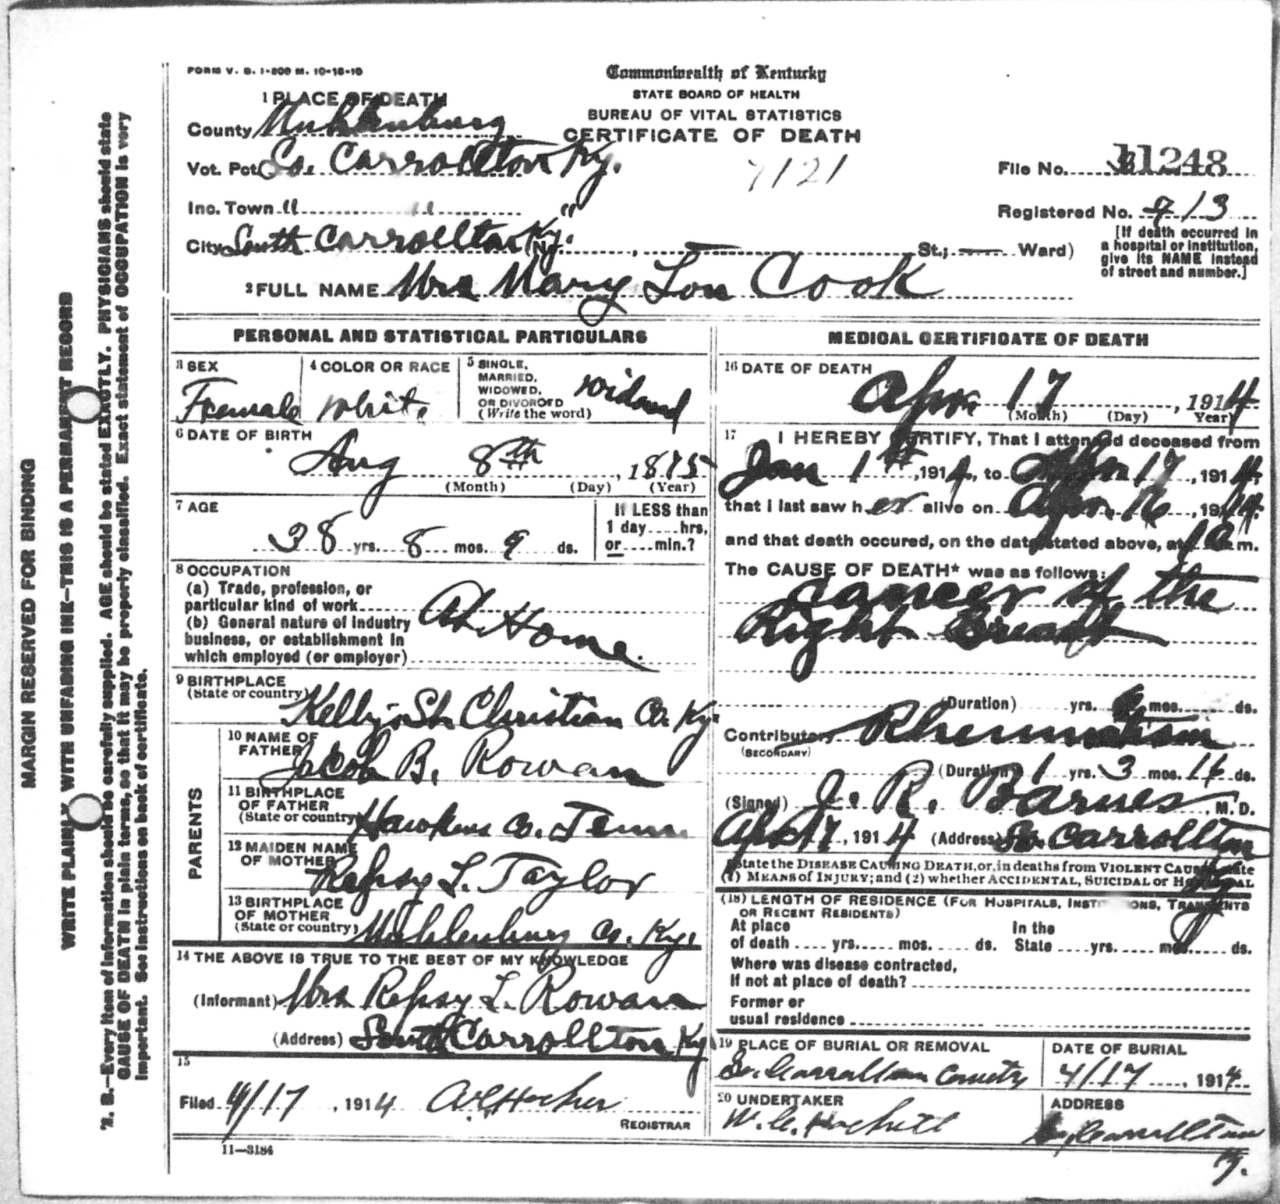 FORM V. S. 1-200 M. 10-18-10
Commonwealth of Kentucky
STATE BOARD OF HEALTH
BUREAU OF VITAL STATISTICS
CERTIFICATE OF DEATH
7121
1 PLACE OF DEATH
County Muhlenburg
Vot. Pct. So. Carrollton Ky.
Inc. Town " "
City South Carrollton Ky. (No. , St.; Ward)
File No. 11248
Registered No. 913
[If death occurred in
a hospital or institution,
give its NAME instead
of street and number.]
2 FULL NAME Mrs Mary Lou Cook
PERSONAL AND STATISTICAL PARTICULARS
3 SEX
Female
4 COLOR OR RACE
White
5 SINGLE,
MARRIED,
WIDOWED,
OR DIVORCED
(Write the word)
widowed
6 DATE OF BIRTH
Aug 8th , 1875
(Month) (Day) (Year)
7 AGE
38 yrs. 8 mos. 9 ds.
If LESS than
1 day....hrs,
or....min.?
8 OCCUPATION
(a) Trade, profession, or
particular kind of work
(b) General nature of industry
business, or establishment in
which employed (or employer)
At Home
9 BIRTHPLACE
(State or country)
Kelly St. Christian Co. Ky.
PARENTS
10 NAME OF
FATHER
Jacob B. Rowan
11 BIRTHPLACE
OF FATHER
(State or country)
Hawkins Co. Tenn.
12 MAIDEN NAME
OF MOTHER
Repsy L. Taylor
13 BIRTHPLACE
OF MOTHER
(State or country)
Muhlenburg Co. Ky.
14 THE ABOVE IS TRUE TO THE BEST OF MY KNOWLEDGE
(Informant) Mrs Repsy L. Rowan
(Address) South Carrollton Ky
15
Filed 4/17 , 1914
REGISTRAR
11—3184
MEDICAL CERTIFICATE OF DEATH
16 DATE OF DEATH
Apr. 17 , 1914
(Month) (Day) Year)
17 I HEREBY CERTIFY, That I attended deceased from
Jan 1st , 1914, to Apr 17 , 1914,
that I last saw her alive on Apr. 16 , 1914,
and that death occured, on the date stated above, at m.
The CAUSE OF DEATH* was as follows:
Cancer of the
Right Breast
(Duration) yrs. mos. ds.
Contributory Rheumatism
(SECONDARY)
(Duration) 1 yrs. 3 mos. 14 ds.
(Signed) J. R. Barnes M. D.
Apr 17 , 1914 (Address) So. Carrollton
*State the DISEASE CAUSING DEATH, or, in deaths from VIOLENT CAUSES, state
(1) MEANS of INJURY; and (2) whether ACCIDENTAL, SUICIDAL or HOMICIDAL
(18) LENGTH OF RESIDENCE (FOR HOSPITALS, INSTITUTIONS, TRANSIENTS
OR RECENT RESIDENTS)
At place In the
of death .... yrs. .... mos. .... ds. State .... yrs. .... mos. .... ds.
Where was disease contracted,
If not at place of death?
Former or
usual residence
19 PLACE OF BURIAL OR REMOVAL
So. Carrollton County
DATE OF BURIAL
4/17 , 1914
20 UNDERTAKER
ADDRESS
So. Carrollton
Ky.
MARGIN RESERVED FOR BINDING
WRITE PLAINLY WITH UNFADING INK—THIS IS A PERMANENT RECORD
N. B.—Every item of information should be carefully supplied. AGE should be stated EXACTLY. PHYSICIANS should state
CAUSE OF DEATH in plain terms, so that it may be properly classified. Exact statement of OCCUPATION is very
important. See instructions on back of certificate.